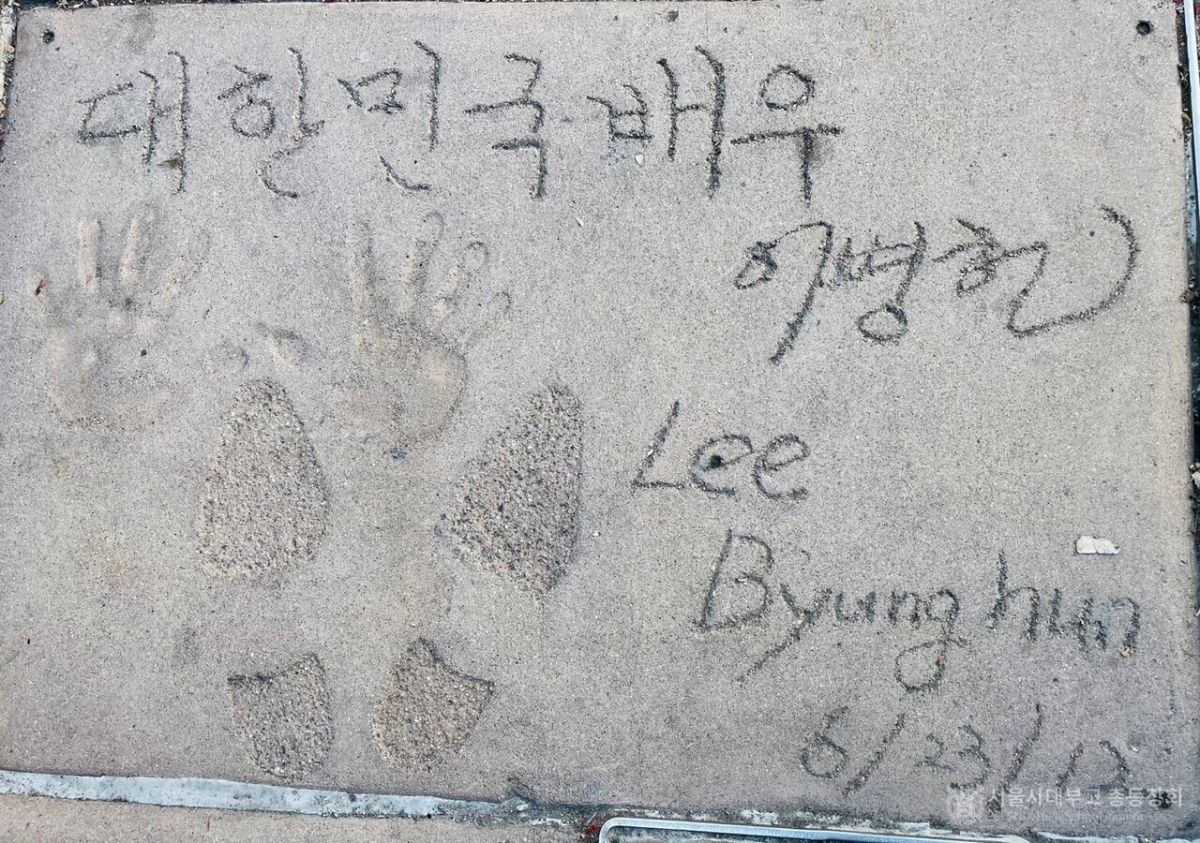 대한민국 배우
이병헌
Lee
Byung hun
6/23/12
서울사대부고 총동창회